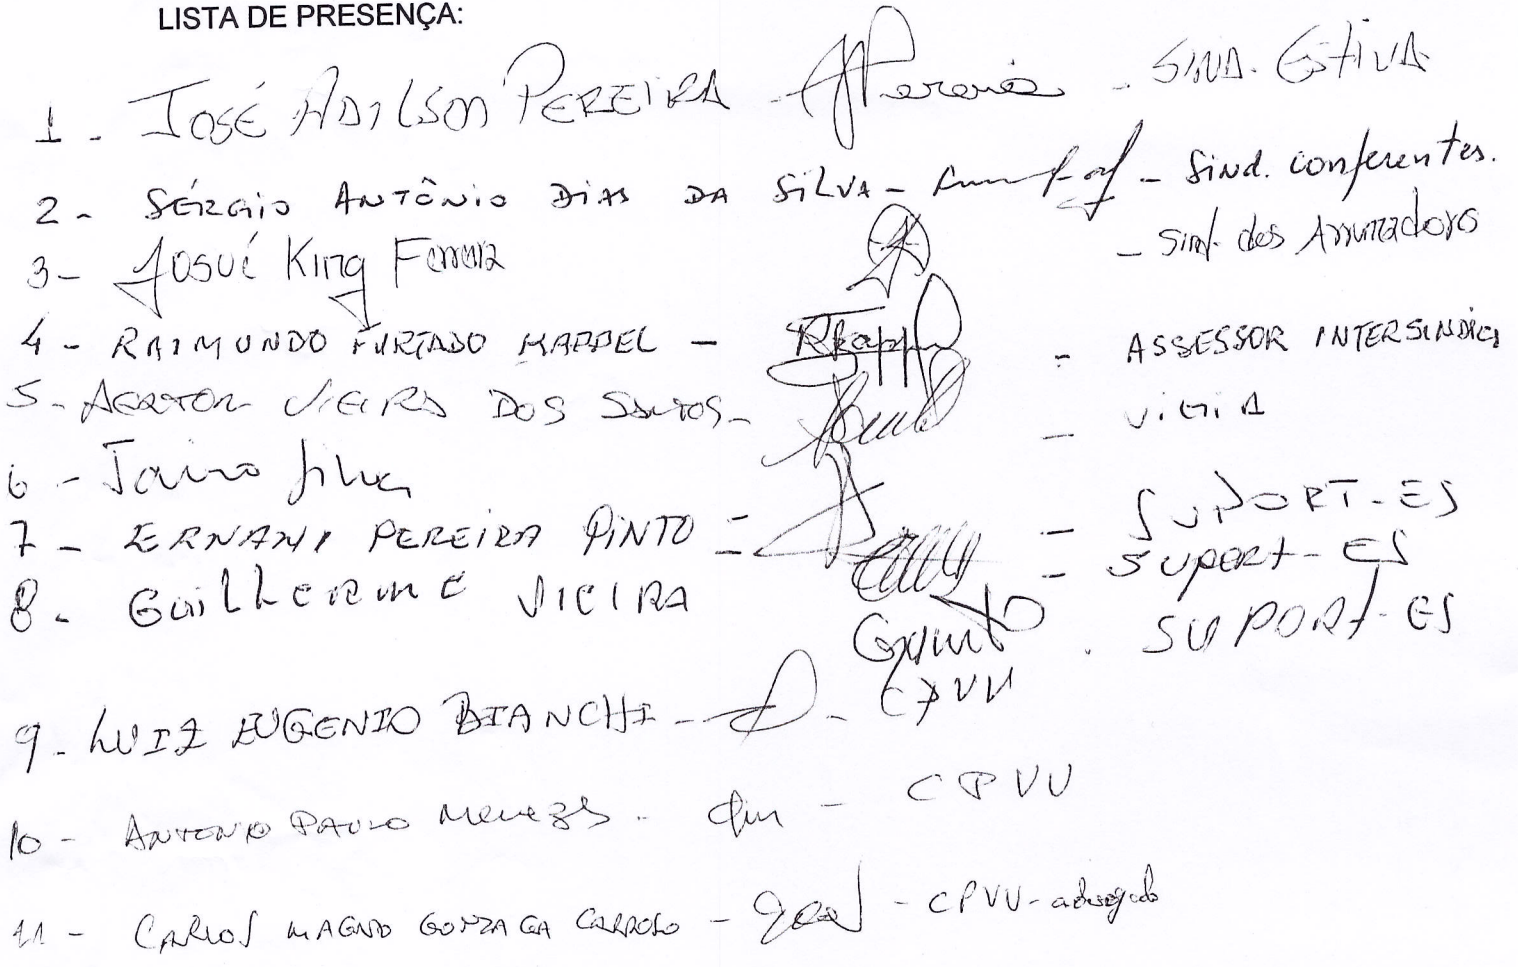 LISTA DE PRESENÇA:
1 - JOSÉ ADILSON PEREIRA - Pereira - SIND. ESTIVA
2 - SÉRGIO ANTÔNIO DIAS DA SILVA - - Sind. conferentes.
3 - Josué King Ferreira - Sind. dos Arrumadores
4 - RAIMUNDO FURTADO KAPPEL - RKappel - ASSESSOR INTERSINDICAL
5 - VIEIRA DOS SANTOS - - VIGIA
6 - Jairo Silva - SUPORT-ES
7 - ERNANI PEREIRA PINTO - SUPORT-ES
8 - Guilherme VIEIRA . SUPORT-ES
9 - LUIZ EUGENIO BIANCHI - - CPVV
10 - ANTONIO PAULO Menezes - - CPVV
11 - CARLOS MAGNO GONZAGA CARDOSO - - CPVV - advogado